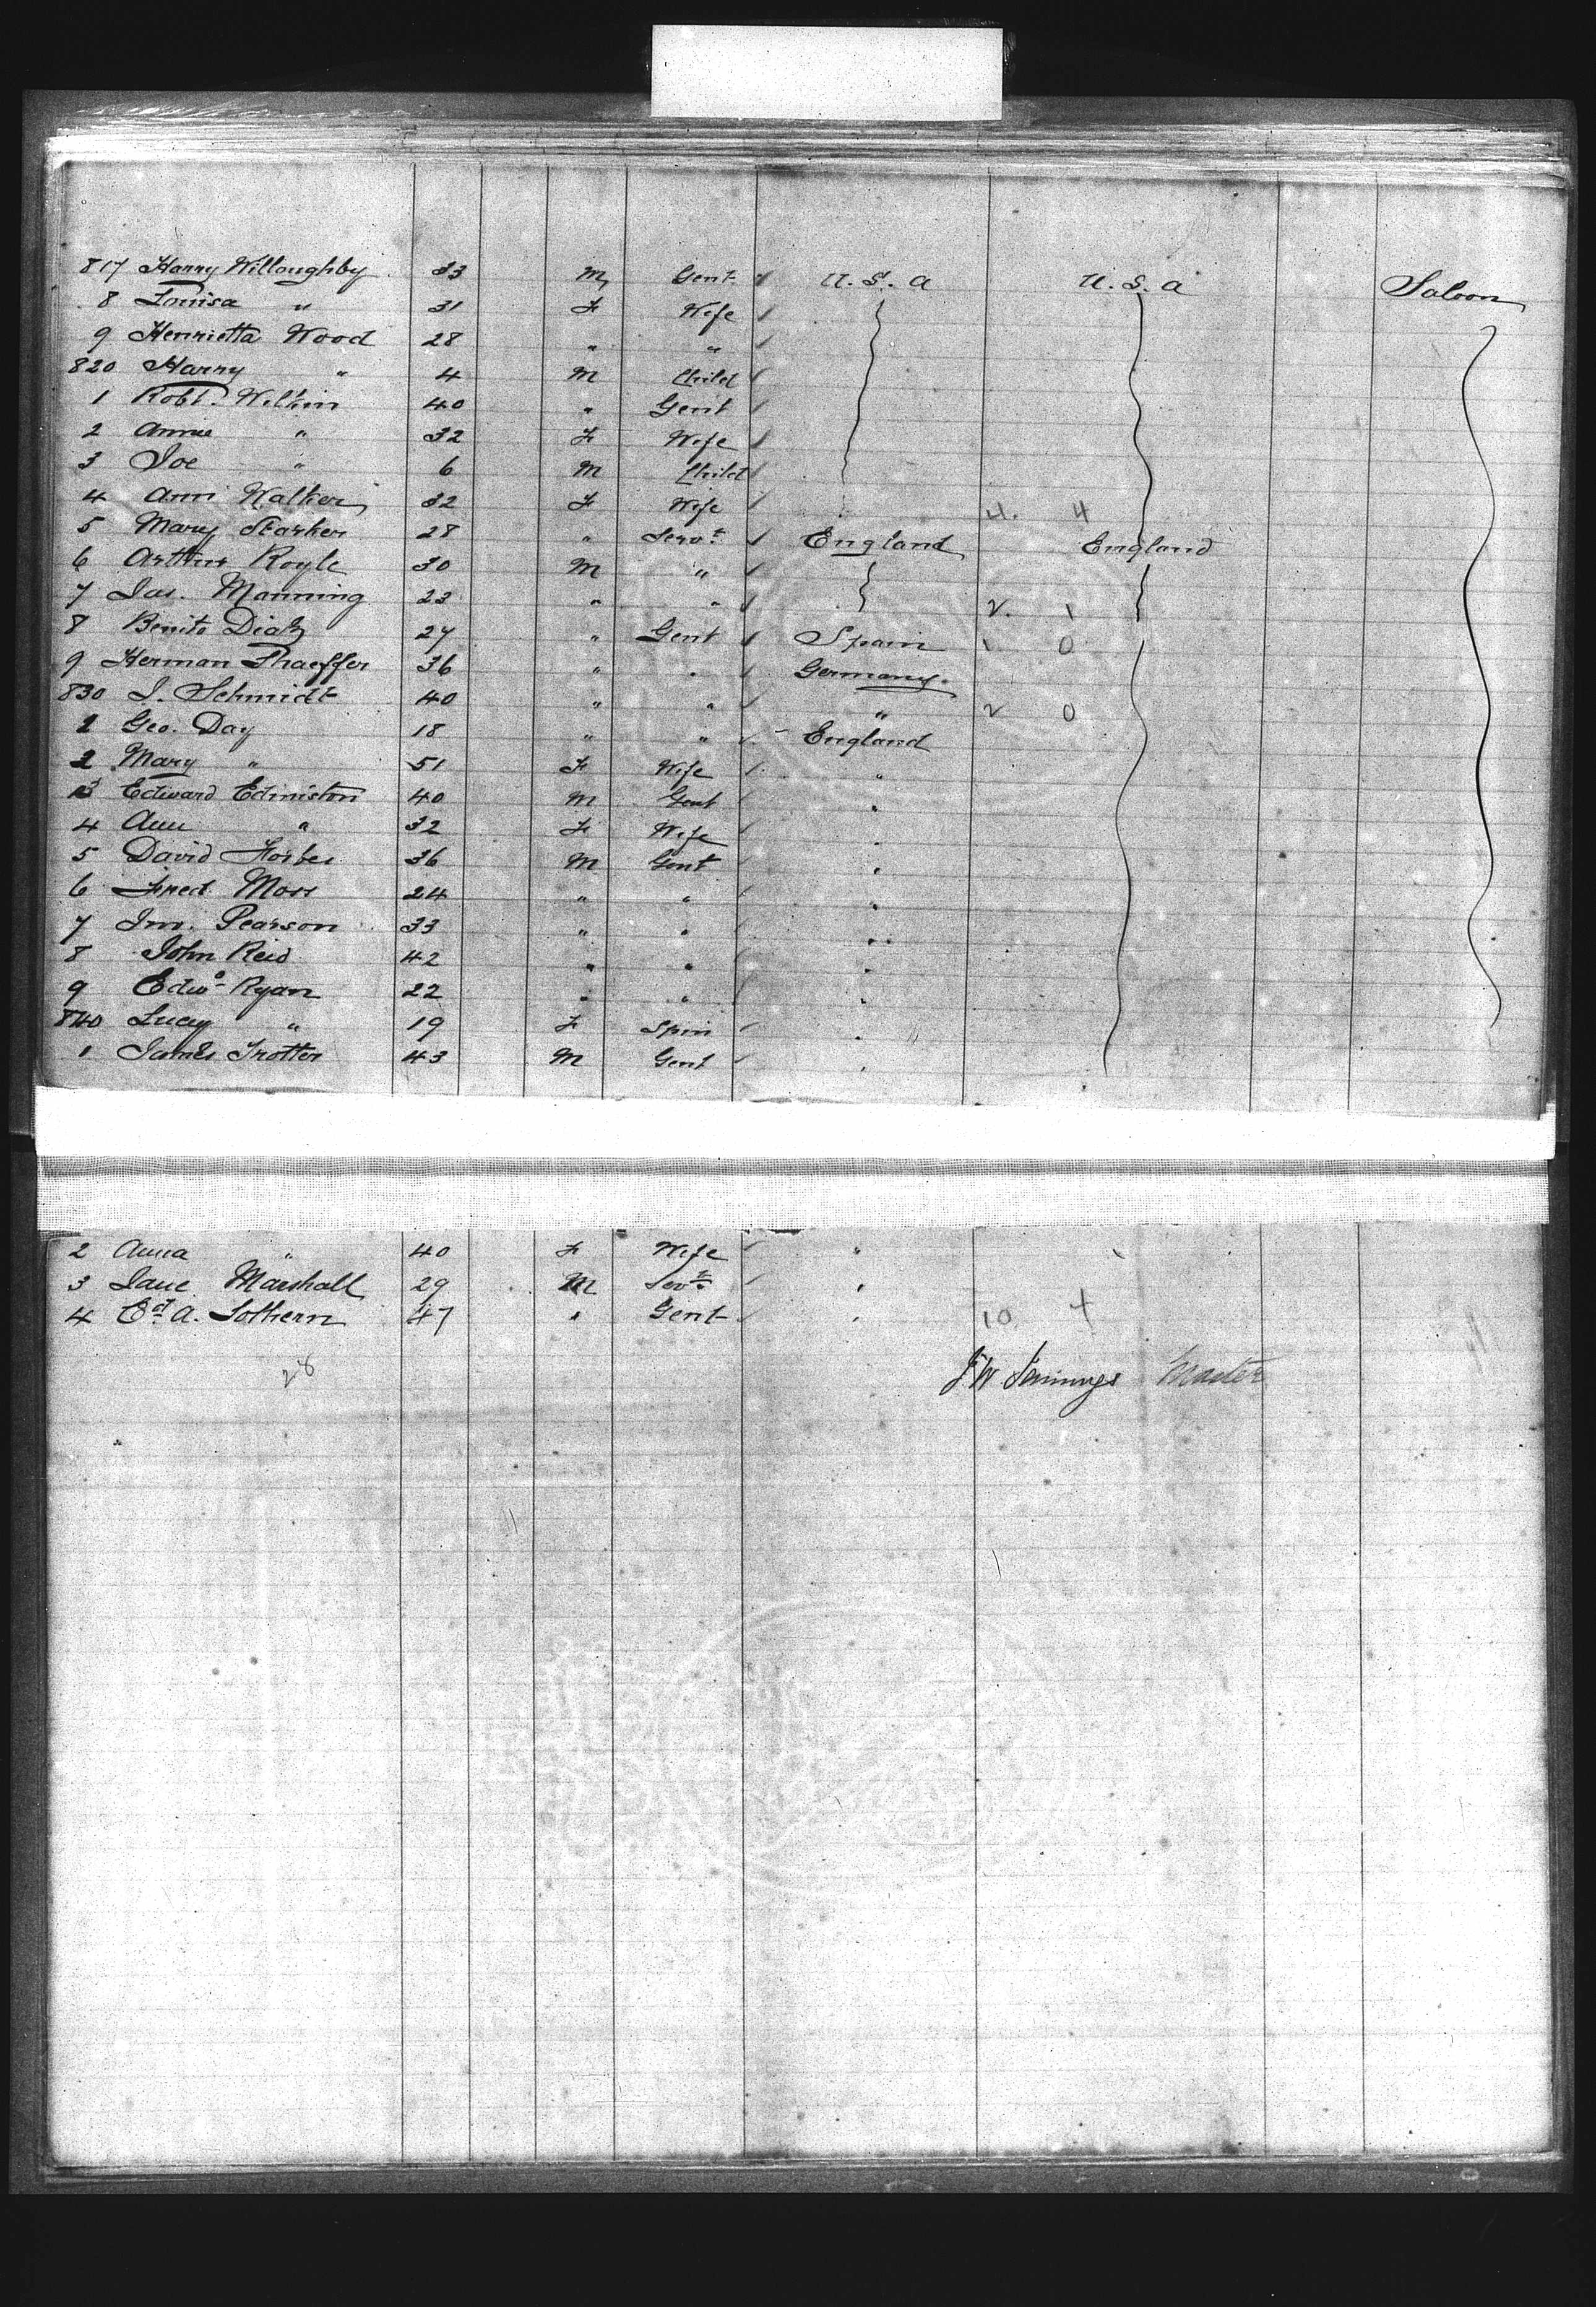 817 Harry Willoughby 33 M Gent U.S.A U.S.A Saloon
8 Louisa " 31 F Wife
9 Henrietta Wood 28 " "
820 Harry " 4 M Child
1 Robt. Wilkin 40 " Gent
2 Annie " 32 F Wife
3 Joe " 6 M Child
4 Ann Walker 32 F Wife 4. 4
5 Mary Starker 28 " Servt England England
6 Arthur Royle 30 M "
7 Jas. Manning 23 " " 2. 1
8 Benito Diaz 27 " Gent Spain 1 0
9 Herman Shaeffer 36 " " Germany.
830 J. Schmidt 40 " " " 2 0
1 Geo. Day 18 " " England
2 Mary " 51 F Wife "
3 Edward Edmiston 40 M Gent "
4 Ann " 32 F Wife "
5 David Forbes 36 M Gent "
6 Fred Moss 24 " " "
7 Jno. Pearson 33 " " "
8 John Reid 42 " " "
9 Edwd Ryan 22 " " "
840 Lucy " 19 F Spin "
1 James Trotter 43 M Gent "
2 Anna " 40 F Wife "
3 Jane Marshall 29 M Servt "
4 Ed A. Sothern 47 " Gent " 10 4
28
J W Jennings Master